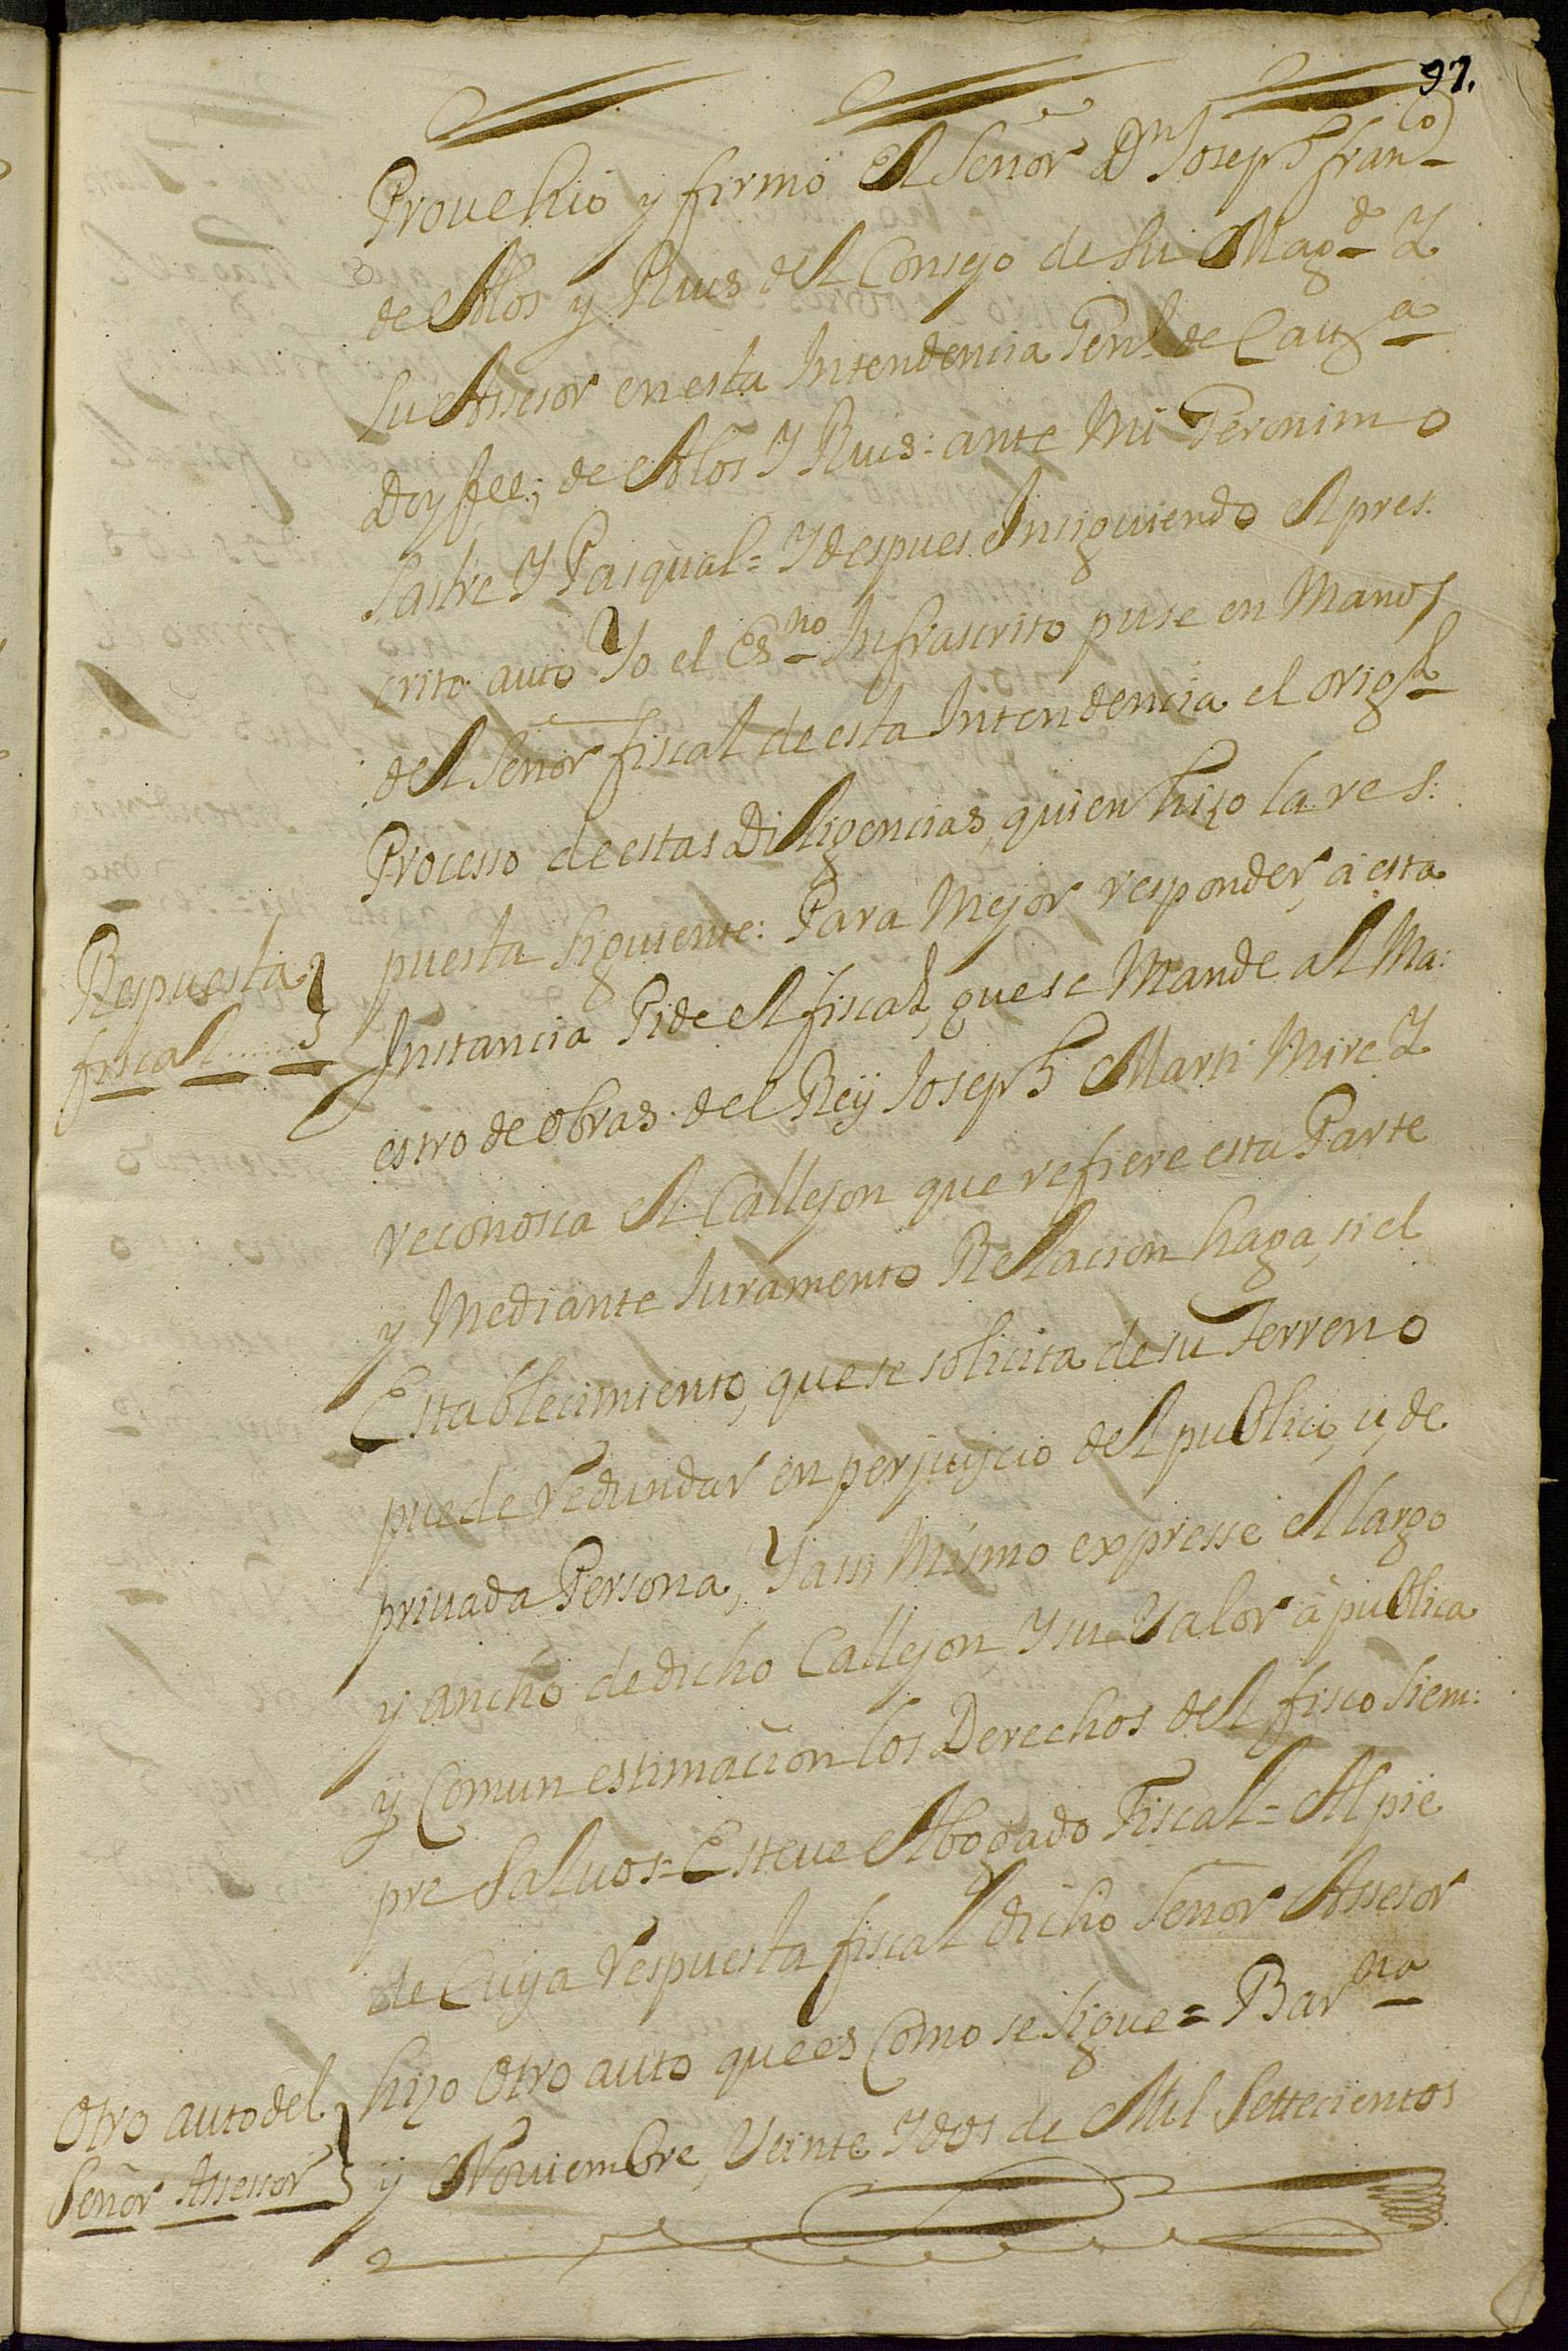 97.
Provehió y firmó El Señor Dn Joseph fran.co
de Alos y Rius del Consejo de Su Mag.d Y
Su Assesor en esta Intendencia Gen.l de Catt.a
Doy fee; de Alos Y Rius: ante Mi Geronimo
Sastre Y Pasqual = Y despues Insiguiendo El pres:
crito auto Yo el Es.no Infrascrito puse en Manos
del Señor fiscal de esta Intendencia el orig.l
Processo de estas Diligencias, quien hizo la res:
puesta Siguiente: Para Mejor responder, á esta
Respuesta
fiscal.......
Instancia Pide el fiscal, que se Mande al Ma:
estro de obras del Reÿ Joseph Marti Mire Y
reconosca el Callejon que refiere esta Parte
y Mediante Juramento Relacion haga, si el
Establecimiento, que se solicita de su Terreno
puede redundar en perjuÿcio del publico, u, de
privada Persona, Y assi Mismo expresse el largo
y ancho de dicho Callejon, Y su Valor á publica
ÿ Comun estimacion los Derechos del fisco Siem:
pre Salvos = Esteve Abogado Fiscal = Al pie
de Cuya respuesta fiscal dicho Señor Assesor
hizo Otro auto que es Como se Sigue = Bar.na
Otro auto del
Señor Assessor
y Noviembre, Veinte Y dos de Mil Settecientos